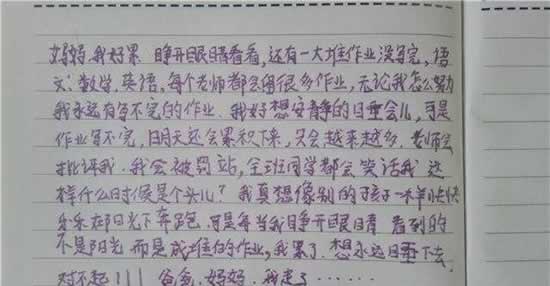 妈妈,我好累 睁开眼睛看看,还有一大堆作业没写完,语
文;数学,英语,每个老师都会留很多作业,无论我怎么努力
我永远有写不完的作业.我好想安静的睡会儿,可是
作业写不完,明天还会累积下来,只会越来越多.老师会
批评我.我会被罚站,全班同学都会笑话我 这
样什么时候是个头儿?我真想像别的孩子一样快快
乐乐在阳光下奔跑.可是每当我睁开眼睛 看到的
不是阳光 而是成堆的作业,我累了.想永远睡下去,
对不起!!!爸爸,妈妈.我走了······